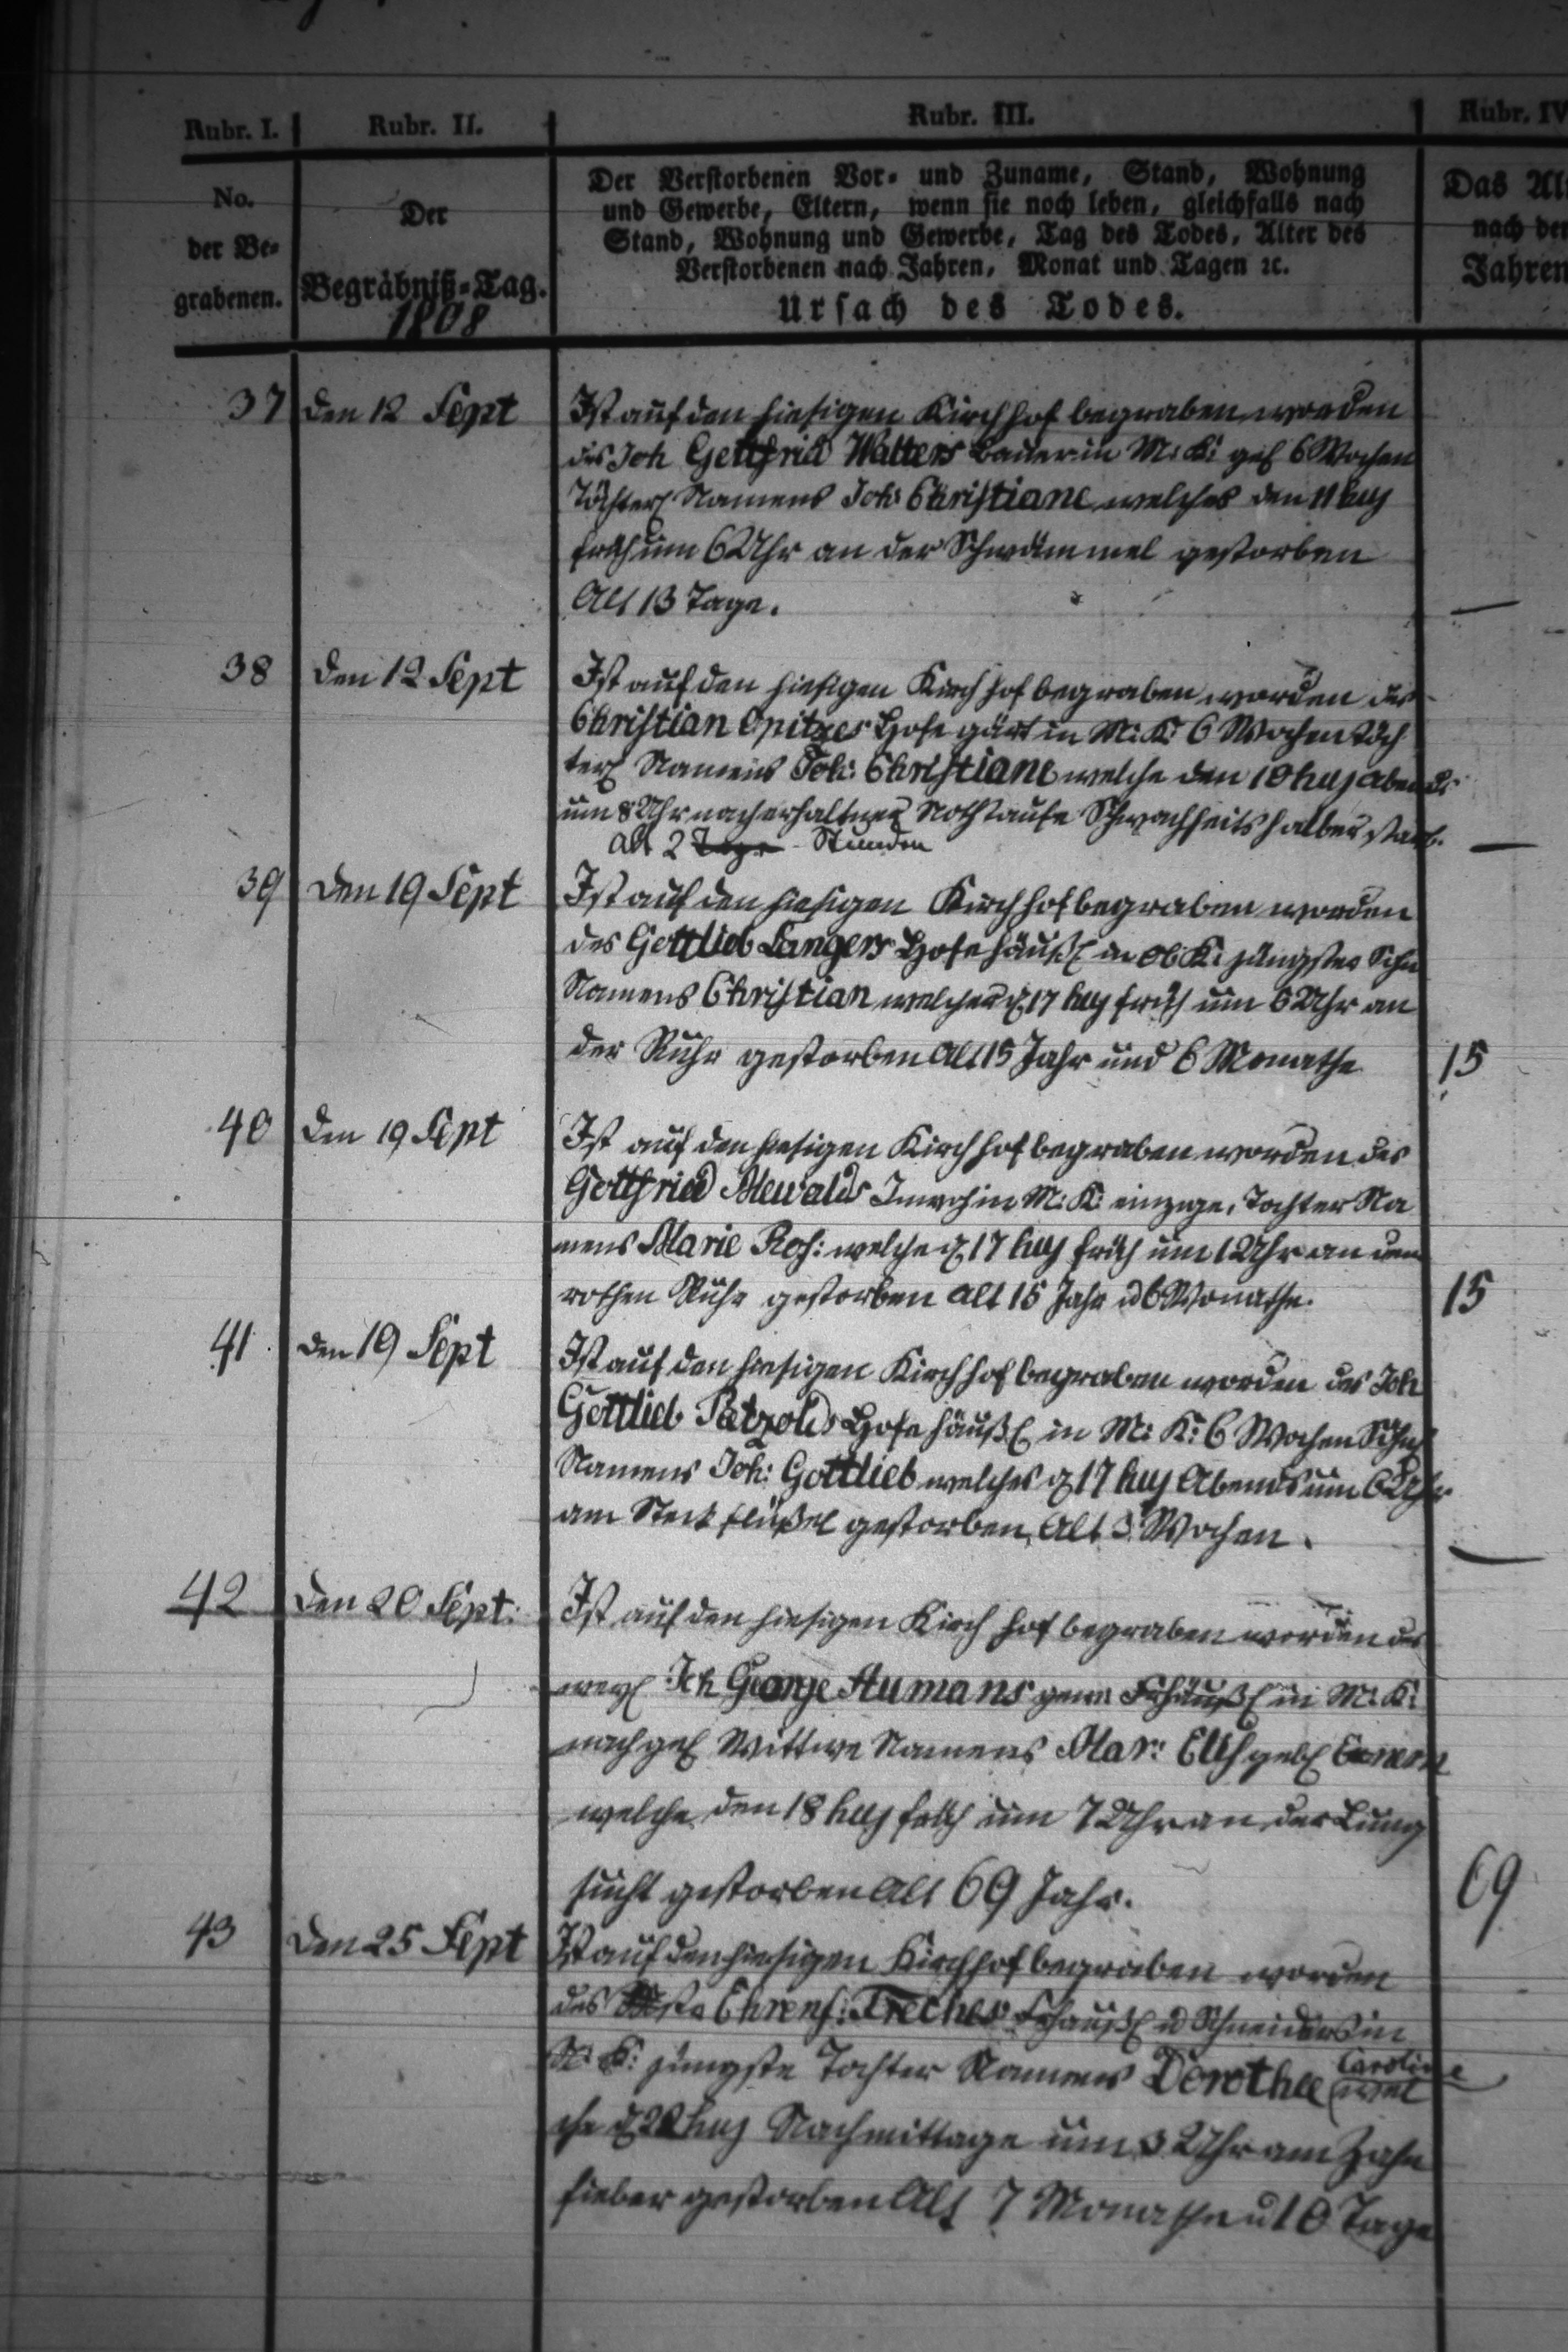 Rubr. I. Rubr. II. Rubr. III. Rubr. IV
No.
der Be=
grabenen.
Der
Begräbniß=Tag.
1808
Der Verstorbenen Vor= und Zuname, Stand, Wohnung
und Gewerbe, Eltern, wenn sie noch leben, gleichfalls nach
Stand, Wohnung und Gewerbe, Tag des Todes, Alter des
Verstorbenen nach Jahren, Monat und Tagen ꝛc.
Ursach des Todes.
Das Al
nach der
Jahren
37 den 12 Sept Ist auf den hiesigen Kirchhof begraben worden
des Joh Gottfried Walters Bauer in M: K: 6 Wochen
Töchterl Namens Joh: Christiane welches den 11 huj
früh um 6 Uhr an der Schwämmel gestorben
Alt 13 Tage.
38 den 12 Sept Ist auf den hiesigen Kirchhof begraben worden des
Christian Opitzes Hofegärt in M: K: 6 Wochen Töch
terl Namens Joh: Christiane welche den 10 huj Abends
um 8 Uhr nach erhaltner Nothtaufe Schwachheits halber starb.
Alt 2 Tage Stunden
39 den 19 Sept Ist auf den hiesigen Kirchhof begraben worden
des Gottlieb Langers Hofehäußl in Ob K: jüngster Sohn
Namens Christian welcher d 17 huj früh um 6 Uhr an
der Ruhr gestorben Alt 15 Jahr und 6 Monathe 15
40 den 19 Sept Ist auf den hiesigen Kirchhof begraben worden des
Gottfried Mewalds Inwoh in M: K: einzige Tochter Na
mens Marie Ros: welche d 17 huj früh um 1 Uhr an der
rothen Ruhr gestorben alt 15 Jahr u 6 Monathe. 15
41 den 19 Sept Ist auf den hiesigen Kirchhof begraben worden des Joh
Gottlieb Patzolds Hofehäußl in M: K: 6 Wochen Söhnl
Namens Joh: Gottlieb welches d 17 huj Abends um 6 Uhr
am Steckflußel gestorben, Alt 3 Wochen.
42 den 20 Sept: Ist auf den hiesigen Kirchhof begraben worden des
weyl Joh George Aumans gew: Frhäußl in M: K:
nachgel Wittwe Namens Mar: Elis gebl
welche den 18 huj früh um 7 Uhr an der Lung
sucht gestorben Alt 69 Jahr. 69
43 den 25 Sept Ist auf den hiesigen Kirchhof begraben worden
des Mstr Ehrenf: Treches Frhäußl u Schneiders in
N: K: jüngste Tochter Namens Dorothee Caroline wel
che d 22 huj Nachmittage um 3 Uhr am Zahn
fieber gestorben Alt 7 Monathe u 10 Tage